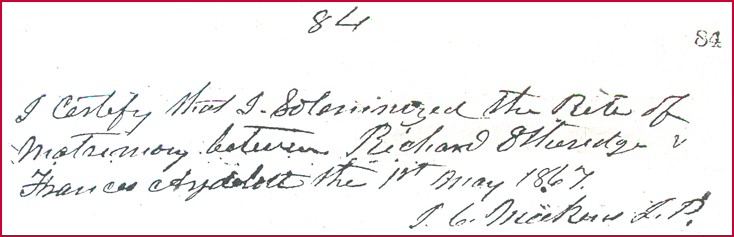 84
84
I Certify that I Solemnized the Rite of
Matrimony between Richard Etheridge &
Frances Aydlott the 1st May 1867.
J. P.